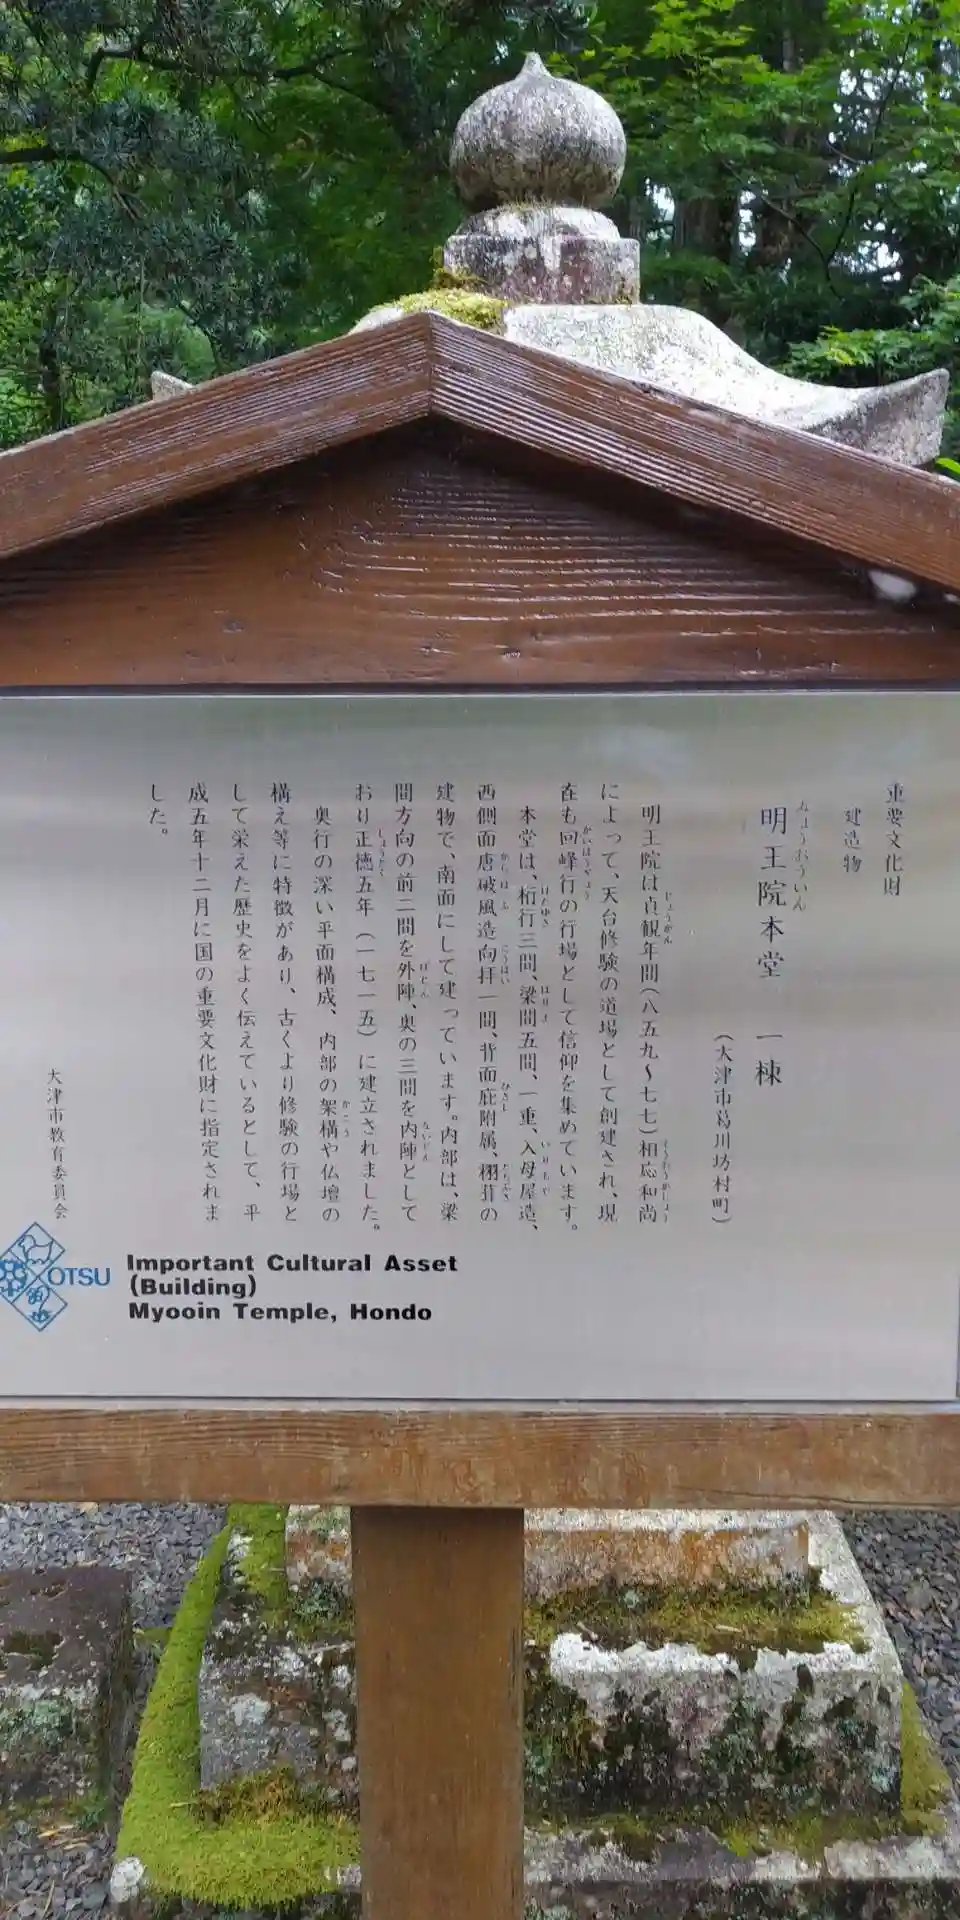 重要文化財
建造物
明王院本堂 一棟
みょうおういん
(大津市葛川坊村町)
明王院は貞観年間(八五九〜七七)相応和尚
じょうがん
そうおうかしょう
によって、天台修験の道場として創建され、現
在も回峰行の行場として信仰を集めています。
かいほうぎょう
本堂は、桁行三間、梁間五間、一重、入母屋造、
けたゆき
はりま
いりもや
西側面唐破風造向拝一間、背面庇附属、栩葺の
からはふ
こうはい
ひさし
とちぶき
建物で、南面にして建っています。内部は、梁
間方向の前二間を外陣、奥の三間を内陣として
げじん
ないじん
おり正徳五年(一七一五)に建立されました。
しょうとく
奥行の深い平面構成、内部の架構や仏壇の
かこう
構え等に特徴があり、古くより修験の行場と
して栄えた歴史をよく伝えているとして、平
成五年十二月に国の重要文化財に指定されま
した。
大津市教育委員会
OTSU
Important Cultural Asset
(Building)
Myooin Temple, Hondo